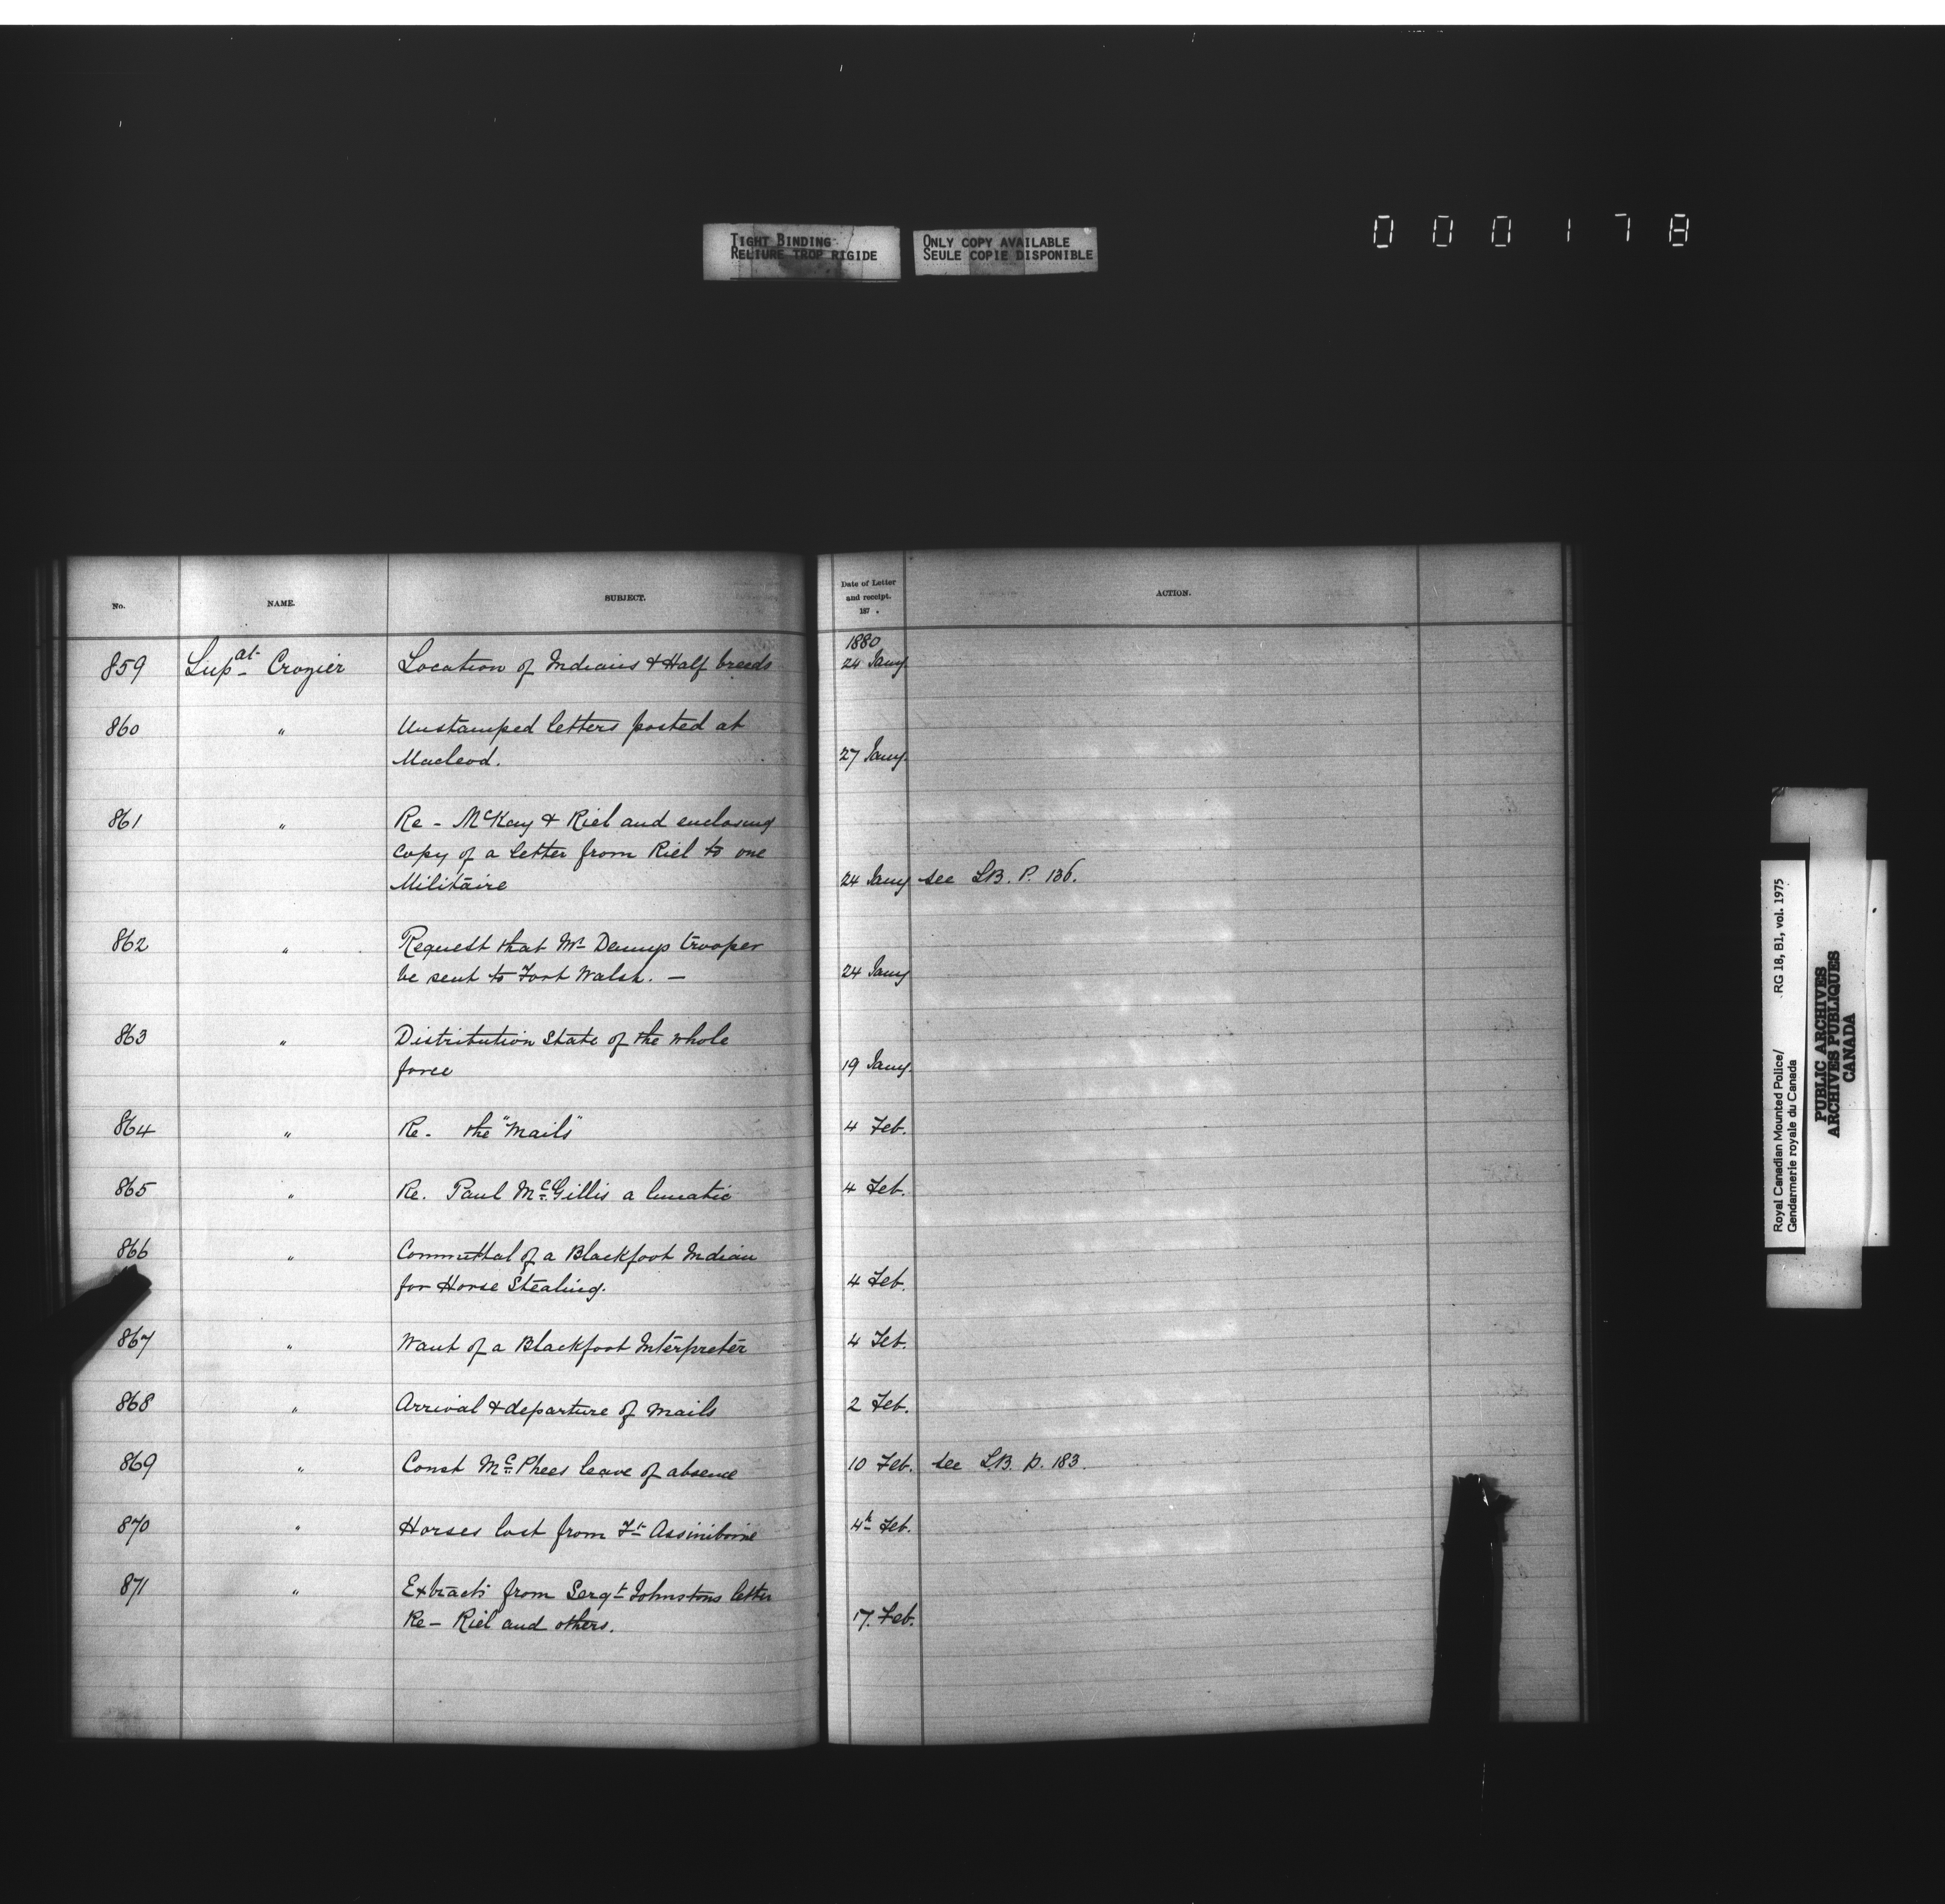 000178
TIGHT BINDING
RELIURE TROP RIGIDE
ONLY COPY AVAILABLE
SEULE COPIE DISPONIBLE
No. NAME. SUBJECT. Date of Letter and receipt. 187 . ACTION.
1880
859 Supat Crozier Location of Indians & Half breeds 24 Jany.
860 " Unstamped letters posted at
Macleod. 27 Jany.
861 " Re - McKay & Riel and enclosing
copy of a letter from Riel to one
Militaire 24 Jany see LB. P. 136.
862 " Request that Mr Dennys trooper
be sent to Fort Walsh. - 24 Jany
863 " Distribution State of the whole
force 19 Jany.
864 " Re - the "Mails" 4 Feb.
865 " Re. Paul McGillis a lunatic 4 Feb.
866 " Committal of a Blackfoot Indian
for Horse Stealing. 4 Feb.
867 " Want of a Blackfoot Interpreter 4 Feb.
868 " Arrival & departure of Mails 2 Feb.
869 " Const McPhees leave of absence 10 Feb. see LB. p. 183.
870 " Horses lost from Ft Assiniboine 4h Feb.
871 " Extracts from Sergt Johnstons letter
Re - Riel and others. 17. Feb.
Royal Canadian Mounted Police/
Gendarmerie royale du Canada
RG 18, B1, vol. 1975
PUBLIC ARCHIVES
ARCHIVES PUBLIQUES
CANADA